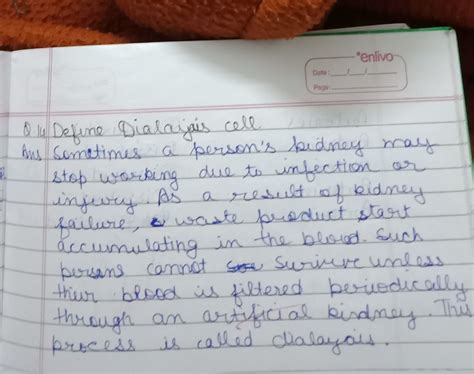 enlivo
Date : __/__/__
Page
Q 14 Define Dialaysis cell.
Ans Sometimes a person's kidney may
stop working due to infection or
injury. As a result of kidney
failure, waste product start
accumulating in the blood. Such
persons cannot survive unless
thier blood is filtered periodically
through an artificial kindney. This
process is called dialaysis.